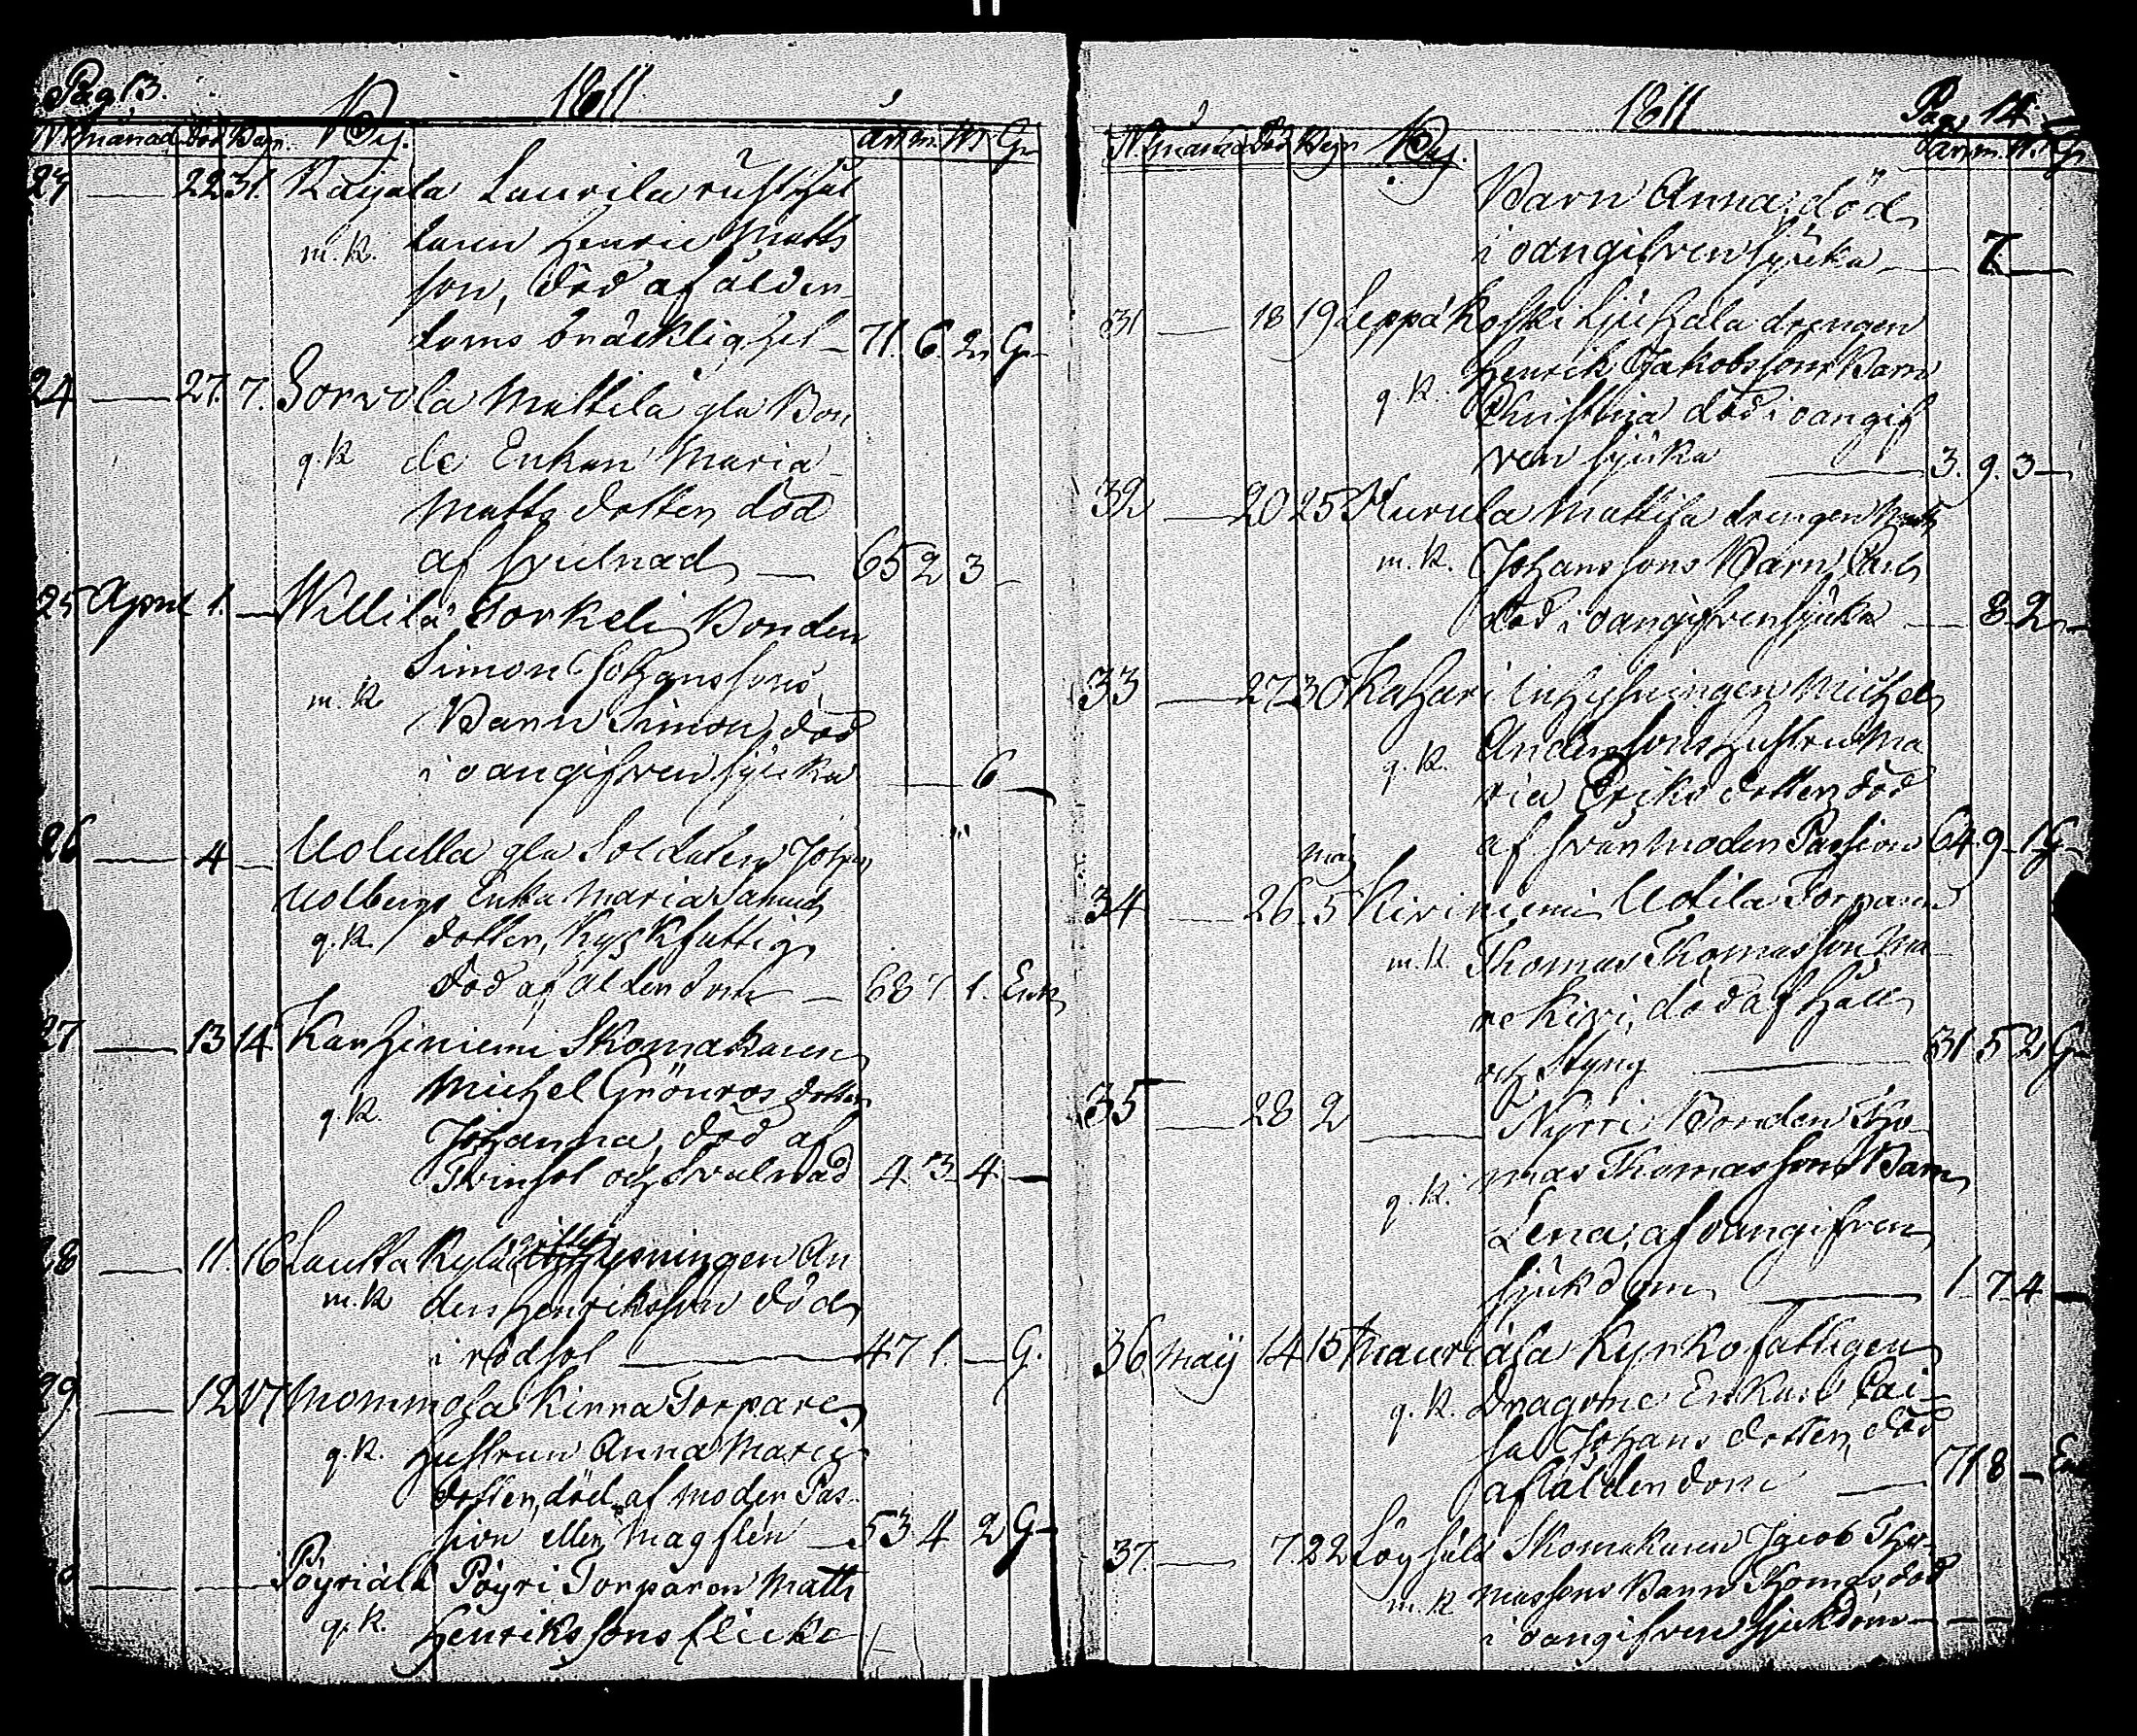 Pag 13.
1811
N månad död Begr. By. år m. W G
22 31. Rajala Laurila rusthål
m.K. laren Henric Matts
son, död af ålder
doms bräcklighet 71. 6. 2. G
24 27. 7. Sorvola Mattila gla Bon
q.K de Enkan Maria
Matts dotter, död
af svulnad 65 2 3
25 April 1. Willilä Torkeli Bonden
Simon Johanssons
m.K Barn Simon, död
i oangifven sjuka 6
26 4 Uolulla gla Soldaten Johan
Uolbergs Enka Maria Samuels
q.K. dotter, Kyrkfattig
död af ålderdom 68 1. 1. Enk
27 13 14 Karhiniemi Skomakaren
Michel Grönros dotter
q.K. Johanna, död af
Tvinsot och Svulnad 4. 3 4.
28 11. 16 Lautta Kylä hysningen An
m.K ders Henriksson död
i rödsot 47 1. G.
29 12 17 Mommola Kinna Torpare
q.K. hustrun Anna Maria
dotter, död af moder Pas
sion eller magplen 53 4 2 G
Pöyriälä Pöyri Torparen Matts
q.K. Henrikssons flicke
1811 Pag. 14.
N. månad död Begr By. år m. W. G
Barn Anna, död
i oangifven sjuka 7
31 18 19 Leppäkoski Sjuhala drengen
q.K. Henrik Jakobssons Barn
Christina död i oangif
ven sjuka 3. 9. 3
32 20 25 Kurula Mattila drengen Matts
m.K. Johanssons Barn Carl
död i oangifven sjuka 8 2
33 27 30 Kahari Inhysningen Michel
q.K. Anderssons hustru Ma
ria Eriks dotter, död
af svår moder Passion 64. 9 1 G
maj
34 26. 5 Kiviniemi Uotila Torparen
m.K. Thomas Thomasson Ma
re Kivi, död af håll
och Styng 31 5 2 G
35 28 2 Nyrri Bonden Tho
q.K. mas Thomassons Barn
Lena, af oangifven
sjukdom 1 7 4
36 Maij 14 15 Mauriala Kyrkofattigen
q.K. Dragone Enkan Cai
sa Johans dotter, död
af ålderdom 71 8 En
37. 7. 22 Skomakaren Jacob Tho
m.K massons Barn Thomas död
i oangifven Sjukdom